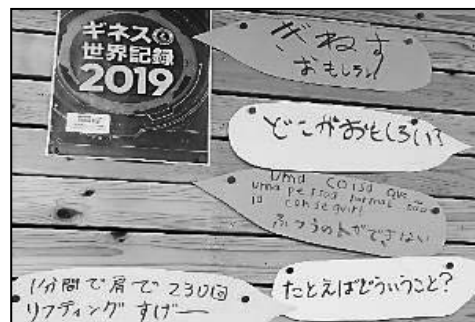 ギネス
世界記録
2019
ぎねす
おもしろい
どこがおもしろい?
uma coisa que
uma pessoa normal não
ia conseguir
ふつうの人ができない
たとえばどういうこと?
1分間で肩で230回
リフティング すげー